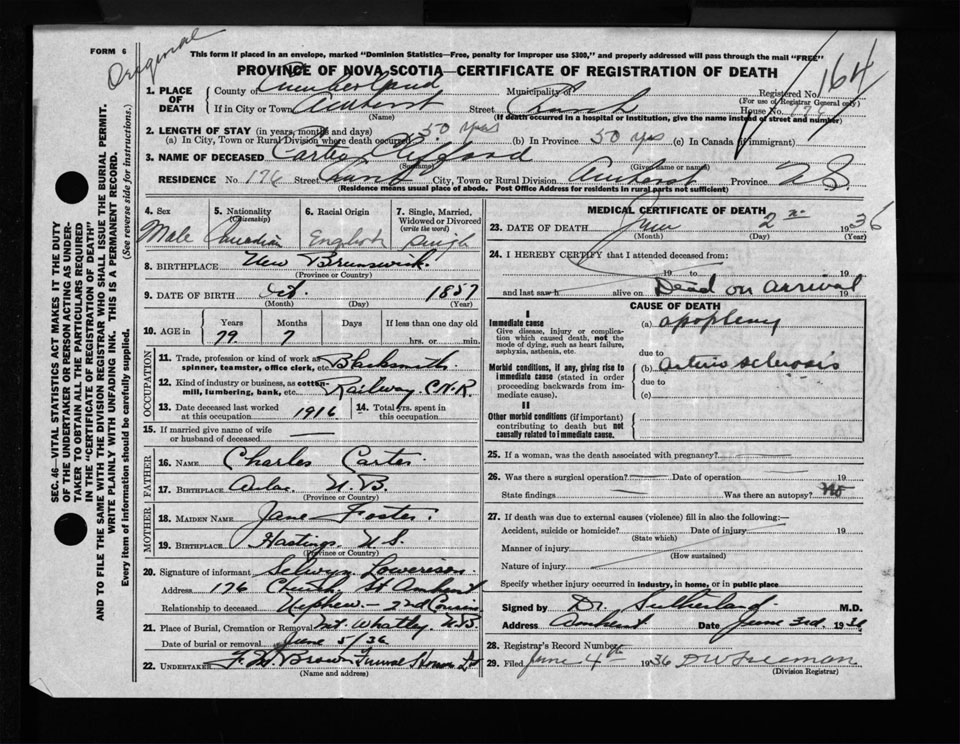 FORM 6
Original
This form if placed in an envelope, marked "Dominion Statistics—Free, penalty for improper use $300," and properly addressed will pass through the mail "FREE"
PROVINCE OF NOVA SCOTIA—CERTIFICATE OF REGISTRATION OF DEATH
164
1. PLACE OF DEATH
County of Cumberland Municipality of Registered No.
(For use of Registrar General only)
If in City or Town Amherst Street Church House No. 176
(Name) (If death occurred in a hospital or institution, give the name instead of street and number)
2. LENGTH OF STAY (in years, months and days)
(a) In City, Town or Rural Division where death occurred 50 yrs (b) In Province 50 yrs (c) In Canada (if immigrant)
3. NAME OF DECEASED Carter
(Surname) (Given name or names)
RESIDENCE No 176 Street Church City, Town or Rural Division Amherst Province N S.
(Residence means usual place of abode. Post Office Address for residents in rural parts not sufficient)
SEC. 46—VITAL STATISTICS ACT MAKES IT THE DUTY
OF THE UNDERTAKER OR PERSON ACTING AS UNDER-
TAKER TO OBTAIN ALL THE PARTICULARS REQUIRED
IN THE "CERTIFICATE OF REGISTRATION OF DEATH"
AND TO FILE THE SAME WITH THE DIVISION REGISTRAR WHO SHALL ISSUE THE BURIAL PERMIT.
WRITE PLAINLY WITH UNFADING INK. THIS IS A PERMANENT RECORD.
Every item of information should be carefully supplied. (See reverse side for instructions.)
4. Sex 5. Nationality (Citizenship) 6. Racial Origin 7. Single, Married, Widowed or Divorced (write the word)
Male Canadian English Single
8. BIRTHPLACE New Brunswick
(Province or Country)
9. DATE OF BIRTH Oct. 1857
(Month) (Day) (Year)
10. AGE in Years Months Days If less than one day old
79 7 hrs. or min.
OCCUPATION
11. Trade, profession or kind of work as spinner, teamster, office clerk, etc. Blacksmith
12. Kind of industry or business, as cotton-mill, lumbering, bank, etc. Railway C.N.R.
13. Date deceased last worked at this occupation 1916
14. Total yrs. spent in this occupation
15. If married give name of wife or husband of deceased
FATHER
16. NAME Charles Carter
17. BIRTHPLACE N.B.
(Province or Country)
MOTHER
18. MAIDEN NAME Jane Foster
19. BIRTHPLACE Hastings N.S.
(Province or Country)
20. Signature of informant Selwyn Lowerison
Address 176 Church St Amherst
Relationship to deceased Nephew – 2nd Cousin
21. Place of Burial, Cremation or Removal Mt. Whatley N.B
Date of burial or removal June 5/36
22. UNDERTAKER F. H. Brown Funeral Ltd
(Name and address)
MEDICAL CERTIFICATE OF DEATH
23. DATE OF DEATH June 2nd 1936
(Month) (Day) (Year)
24. I HEREBY CERTIFY that I attended deceased from:
19 to 19
and last saw h alive on Dead on arrival 19
CAUSE OF DEATH
I
Immediate cause
Give disease, injury or complication which caused death, not the mode of dying, such as heart failure, asphyxia, asthenia, etc.
(a) apoplexy
due to
Morbid conditions, if any, giving rise to immediate cause (stated in order proceeding backwards from immediate cause).
(b) arterio sclerosis
due to
(c)
II
Other morbid conditions (if important) contributing to death but not causally related to immediate cause.
25. If a woman, was the death associated with pregnancy?
26. Was there a surgical operation? Date of operation 19
State findings Was there an autopsy? No
27. If death was due to external causes (violence) fill in also the following:—
Accident, suicide or homicide? Date of injury 19
(State which)
Manner of injury
(How sustained)
Nature of injury
Specify whether injury occurred in industry, in home, or in public place
Signed by Dr. Sutherland M.D.
Address Amherst Date June 3rd. 1936
28. Registrar's Record Number
29. Filed June 4th 1936 D W Freeman
(Division Registrar)